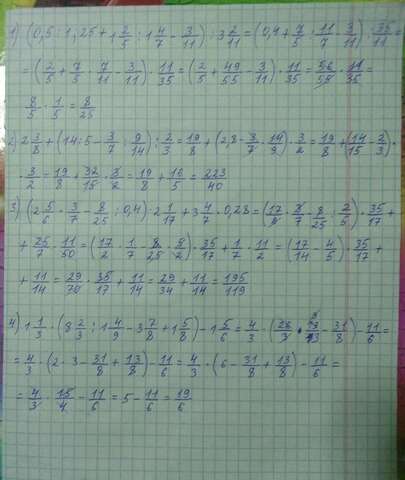 1) (0,5 : 1,25 + 1 2/5 : 1 4/7 - 3/11) : 3 2/11 = (0,4 + 7/5 · 11/7 · 3/11) · 35/11 =
= (2/5 + 7/5 · 7/11 - 3/11) · 11/35 = (2/5 + 49/55 - 3/11) · 11/35 = 56/55 · 11/35 =
8/5 · 1/5 = 8/25
2) 2 3/8 + (14:5 - 3/7 : 9/14) : 2/3 = 19/8 + (2,8 - 3/7 · 14/9) · 3/2 = 19/8 + (14/15 - 2/3) ·
· 3/2 = 19/8 + 32/15 · 3/2 = 19/8 + 16/5 = 223/40
3) (2 5/6 · 3/7 - 8/25 : 0,4) · 2 1/17 + 3 4/7 · 0,28 = (17/2 · 1/7 - 8/25 : 2/5) · 35/17 +
+ 25/7 · 11/50 = (17/2 · 1/7 - 8/25 · 5/2) · 35/17 + 1/7 · 11/2 = (17/14 - 4/5) · 35/17 +
+ 11/14 = 29/70 · 35/17 + 11/14 = 29/34 + 11/14 = 195/119
4) 1 1/3 · (8 2/3 : 1 4/9 - 3 7/8 + 1 5/8) - 1 5/6 = 4/3 · (26/3 · 9/13 - 31/8) - 11/6 =
= 4/3 · (2 · 3 - 31/8 + 13/8) - 11/6 = 4/3 · (6 - 31/8 + 13/8) - 11/6 =
= 4/3 · 15/4 - 11/6 = 5 - 11/6 = 19/6